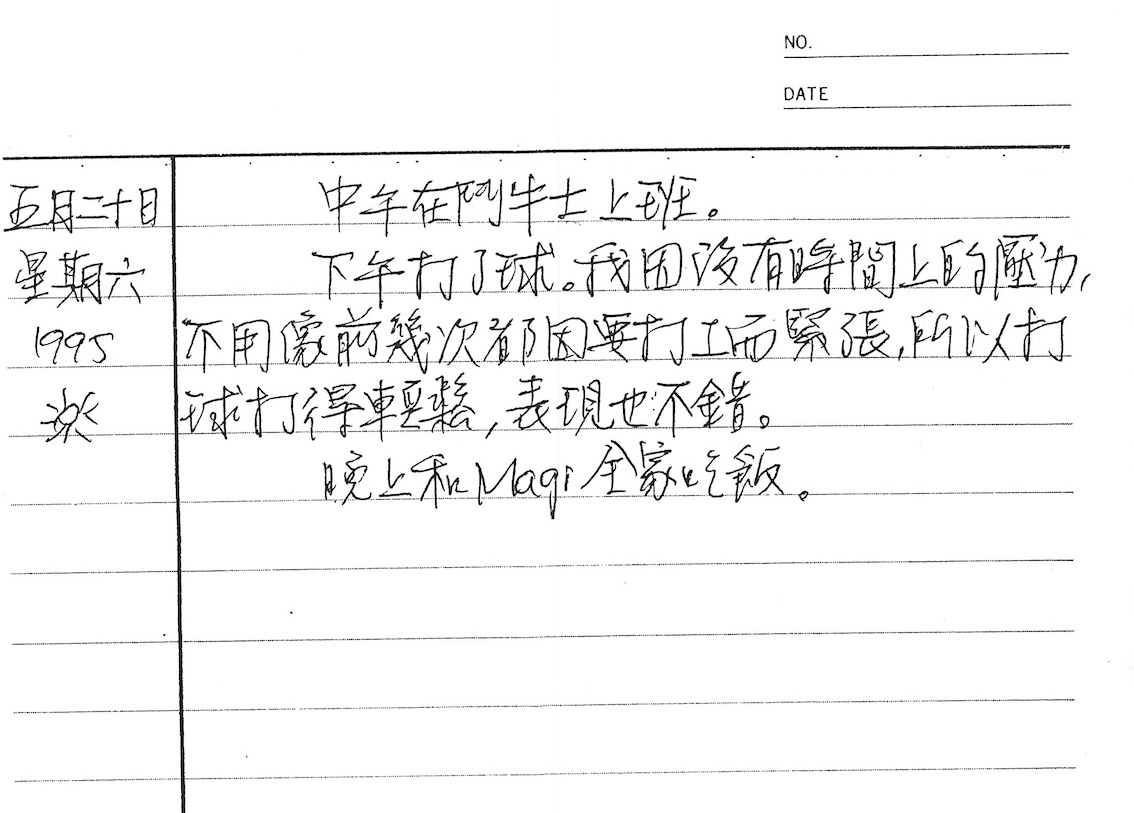 NO.
DATE
五月二十日
星期六
1995
中午在鬥牛士上班。
下午打了球。我因沒有時間上的壓力,
不用像前幾次都因要打工而緊張,所以打
球打得輕鬆,表現也不錯。
晚上和Magi全家吃飯。